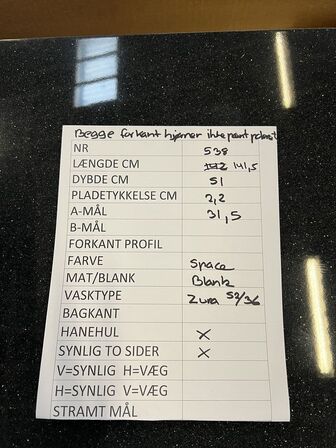 Begge forkant hjørner ikke pænt poleret
NR 538
LÆNGDE CM 141,5
DYBDE CM 51
PLADETYKKELSE CM 2,2
A-MÅL 31,5
B-MÅL
FORKANT PROFIL
FARVE Space
MAT/BLANK Blank
VASKTYPE Zura 52/36
BAGKANT
HANEHUL X
SYNLIG TO SIDER X
V=SYNLIG H=VÆG
H=SYNLIG V=VÆG
STRAMT MÅL